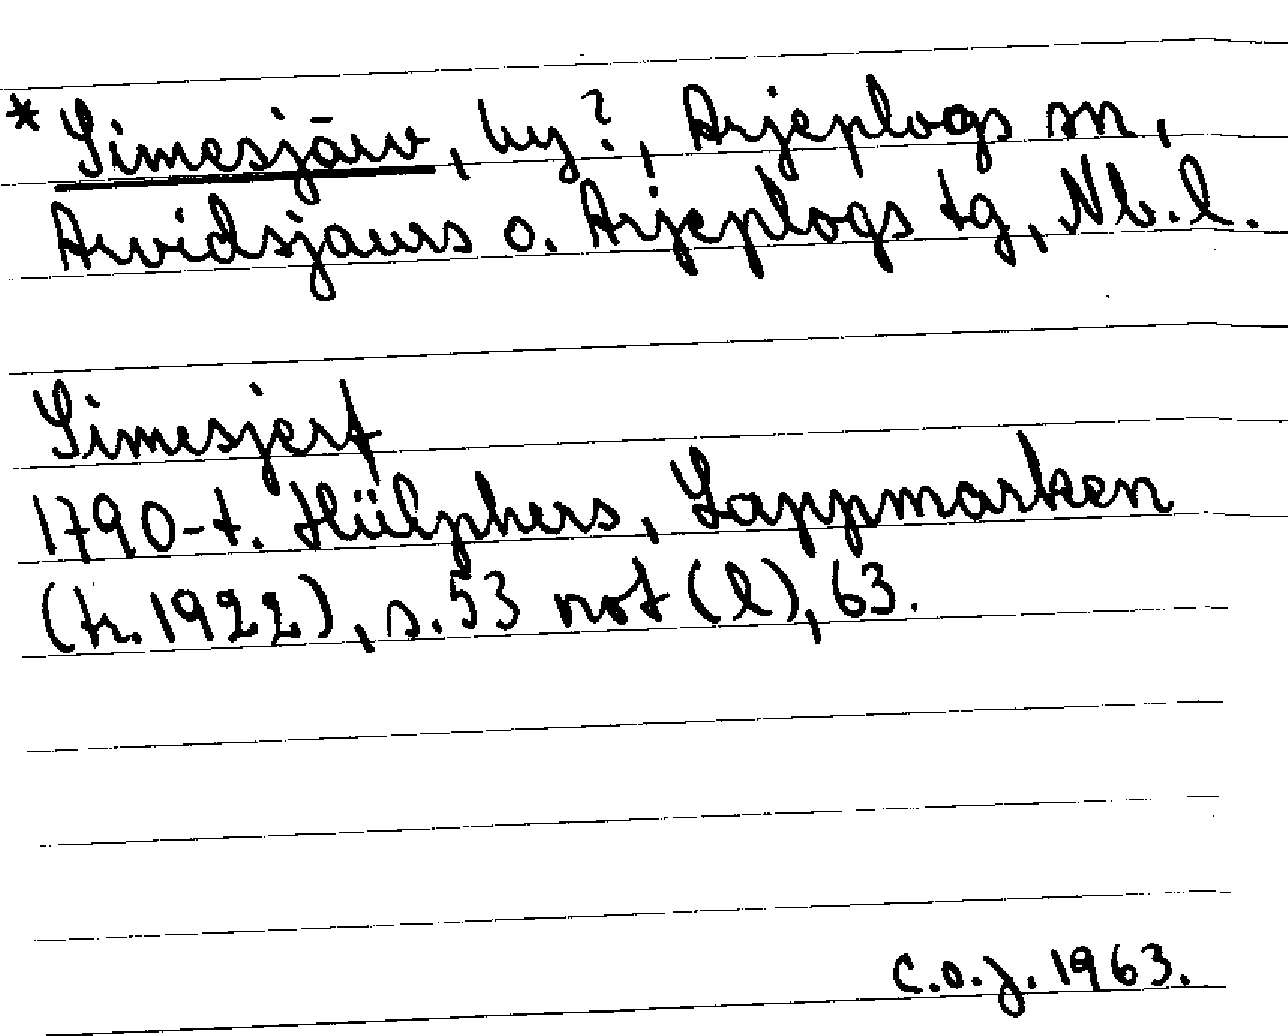 * Simesjäw, by?, Arjeplogs sn,
Arvidsjaurs o. Arjeplogs tg, Nb.l.
Simesjerf
1790-t. Hülphers, Lappmarken
(tr. 1922), s. 53 not (l), 63.
C.O.J. 1963.